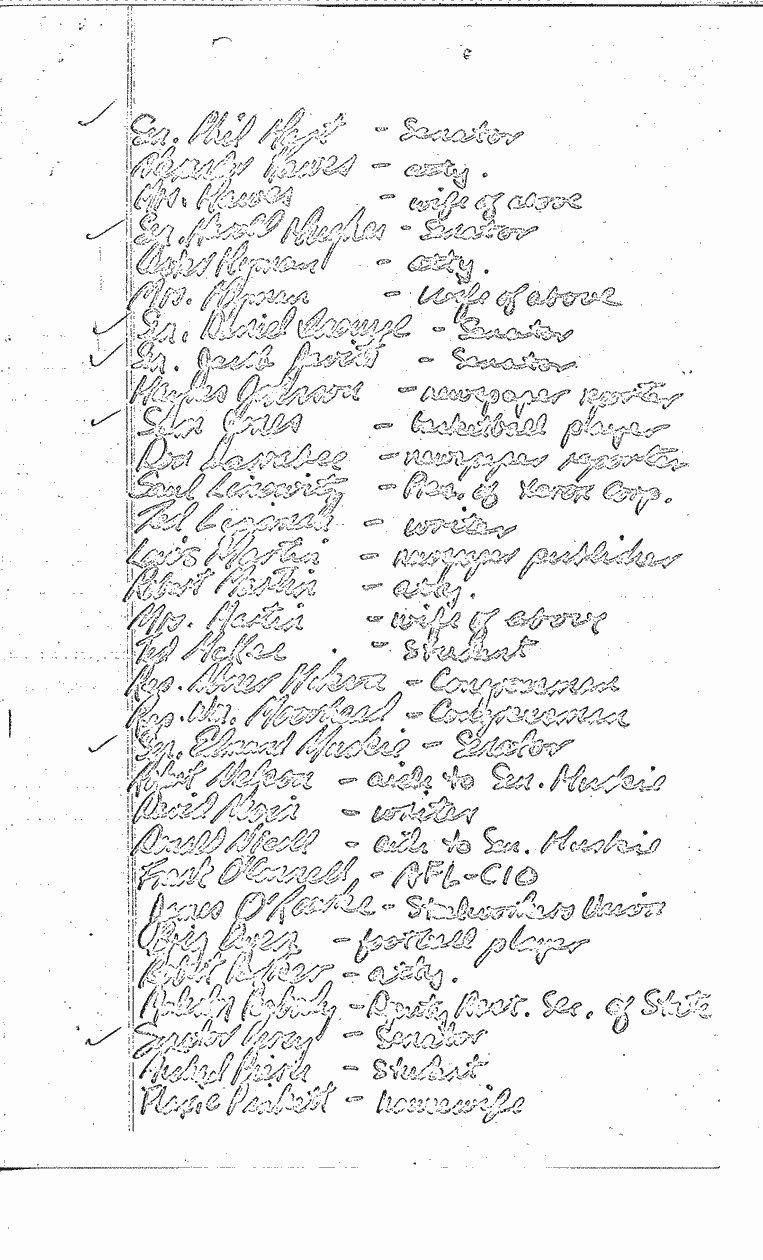 Sen. Phil Hart - Senator
Hawes - atty.
Mrs. Hawes - wife of above
Sen. Harold Hughes - Senator
Hyman - atty.
Mrs. Hyman - wife of above
Sen. Daniel Inouye - Senator
Sen. Jacob Javits - Senator
Haynes Johnson - newspaper reporter
Sam Jones - basketball player
- newspaper reporter
Saul Linowitz - Pres. of Xerox Corp.
Ted - writer
Louis Martin - newspaper publisher
Robert Martin - atty.
Mrs. Martin - wife of above
Ted McKee - student
Rep. Abner Mikva - Congressman
Rep. Wm. Moorhead - Congressman
Sen. Edmund Muskie - Senator
Robert Nelson - aide to Sen. Muskie
David - writer
Nicoll - aide to Sen. Muskie
Frank O'Connell - AFL-CIO
James O'Rourke - Steelworkers Union
Brig Owens - football player
Robert - atty.
Malcolm Peabody - Deputy Asst. Sec. of State
Senator Percy - Senator
Michael - Student
Plaxie - housewife